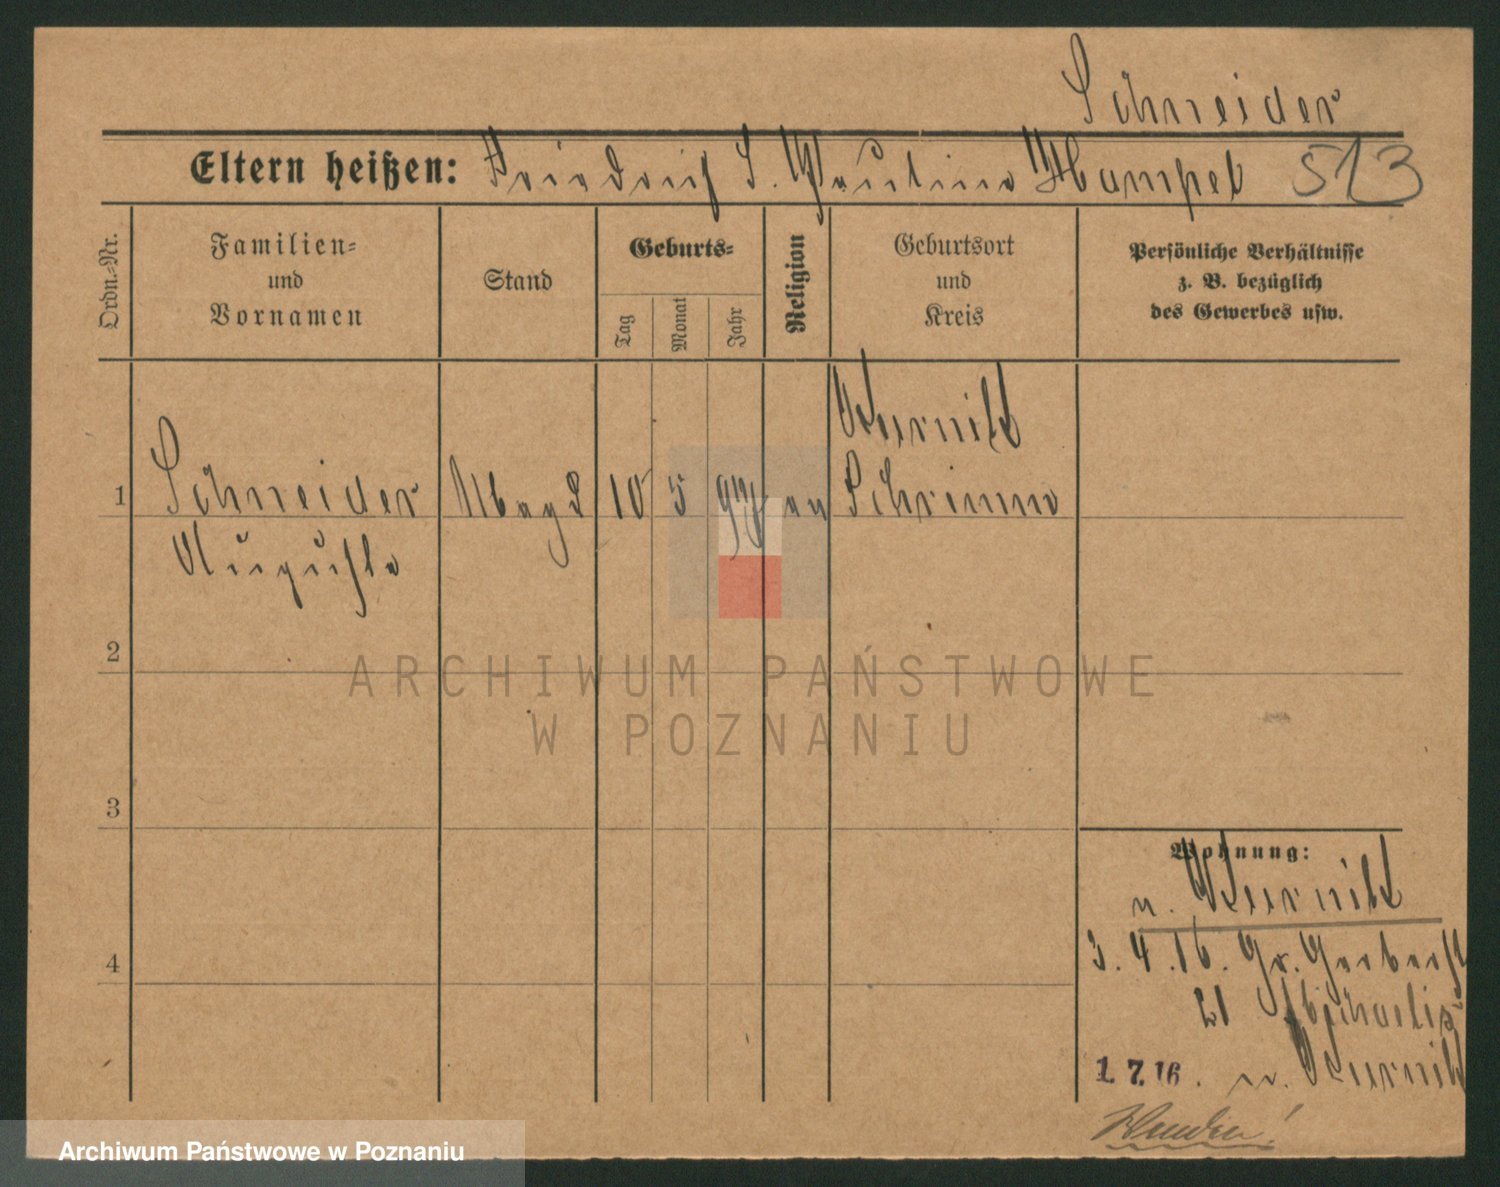 Schneider
Eltern heißen: Friedrich S. Pauline Hampel 513
Ordn.-Nr.
Familien-
und
Vornamen
Stand
Geburts-
Tag
Monat
Jahr
Religion
Geburtsort
und
Kreis
Persönliche Verhältnisse
z. B. bezüglich
des Gewerbes usw.
Kurnik
1 Schneider Magd 10 5 97 ev Schrimm
Auguste
2
3
4
Wohnung:
n. Kurnik
3.4.16. Gr. Gerberst
21
1.7.16. n. Kurnik
ARCHIWUM PAŃSTWOWE
W POZNANIU
Archiwum Państwowe w Poznaniu